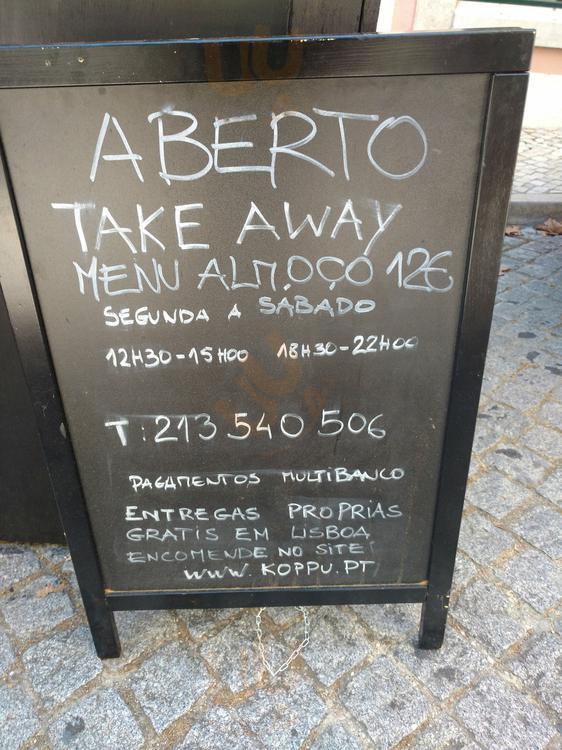 ABERTO
TAKE AWAY
MENU ALM.OÇO 12€
SEGUNDA A SÁBADO
12H30-15H00 18H30-22H00
T:213 540 506
PAGAMENTOS MULTIBANCO
ENTREGAS PROPRIAS
GRATIS EM LISBOA
ENCOMENDE NO SITE!
www.KOPPU.PT